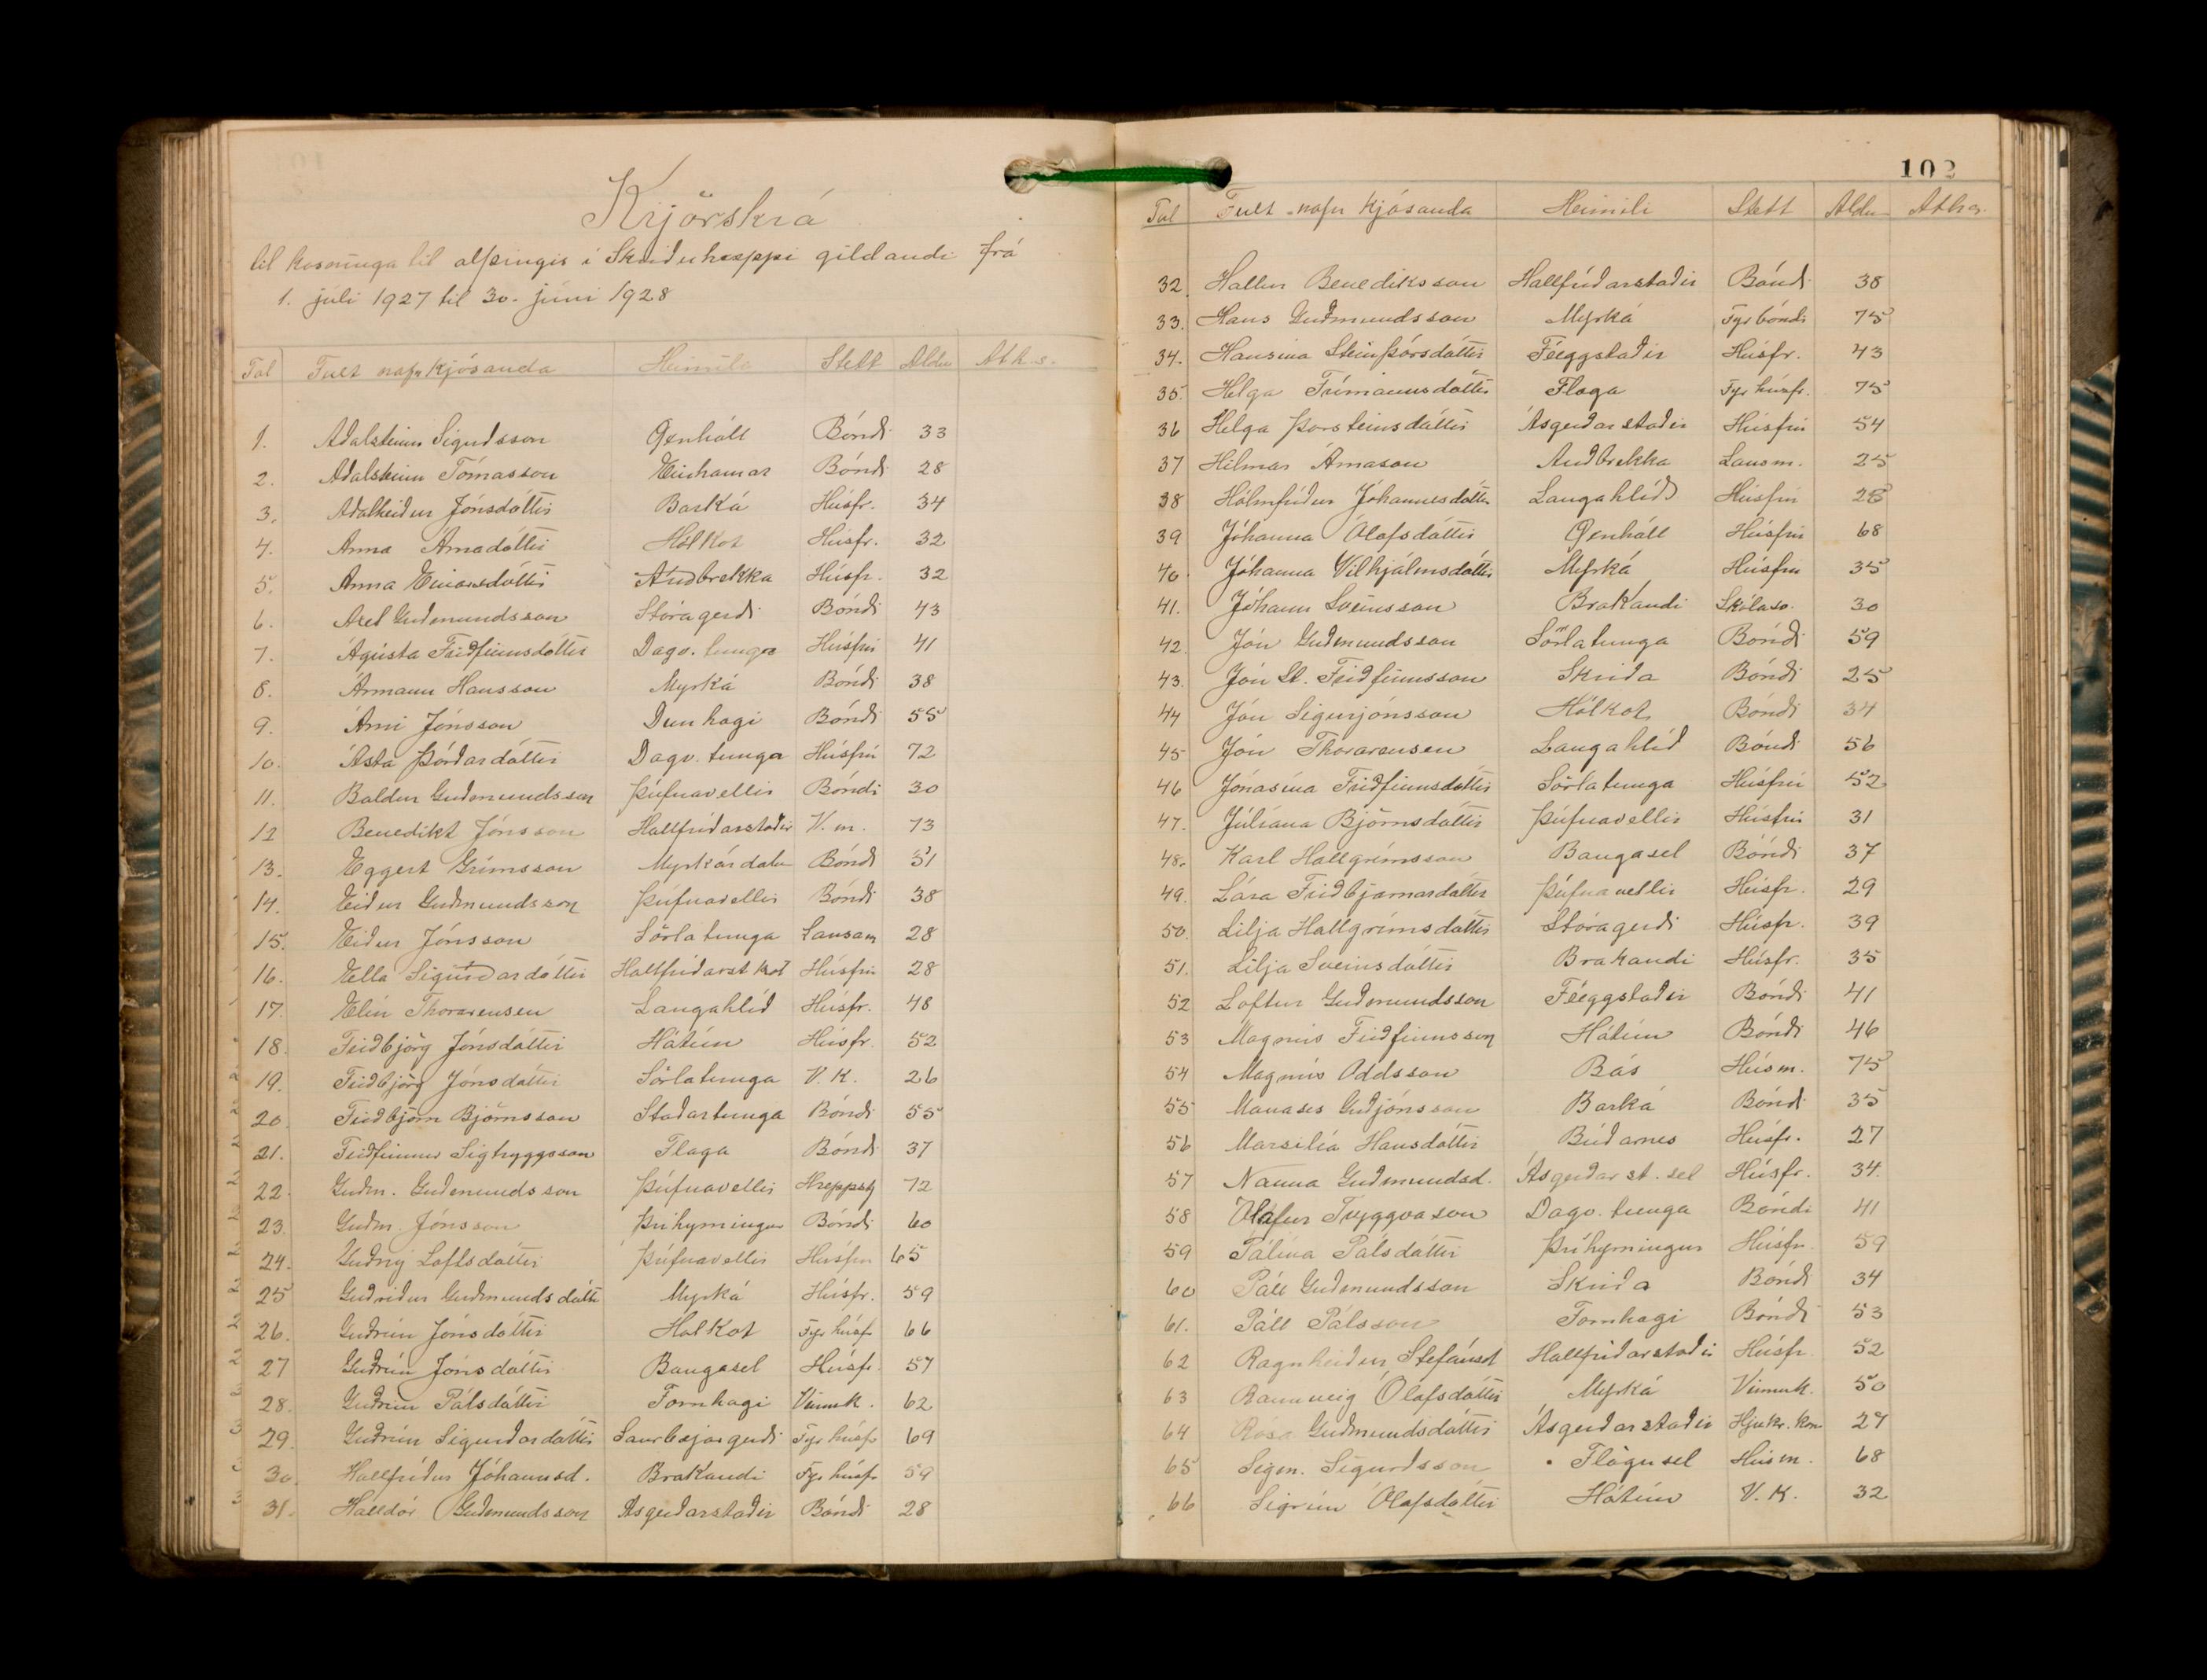 Kjörskrá
til kosninga til alþingis i Skriðuhreppi gildandi frá
1. júli 1927 til 30. júni 1928
Tal Fult nafn Kjósanda Heimili Stett Aldur Ath.s.
1. Aðalsteinn Sigurðsson Öxnhóll Bóndi 33
2. Aðalsteinn Tómasson Einhamar Bóndi 28
3. Aðalheiður Jónsdóttir Barká Húsfr. 34
4. Anna Árnadóttir Hólkot Húsfr. 32
5. Anna Einarsdóttir Auðbrekka Húsfr. 32
6. Axel Guðmundsson Stóragerði Bóndi 43
7. Ágústa Friðfinnsdóttir Dagv. tunga Húsfrú 41
8. Ármann Hansson Myrká Bóndi 38
9. Árni Jónsson Dunhagi Bóndi 55
10. Ásta Þórðardóttir Dagv. tunga Húsfrú 72
11. Baldur Guðmundsson Þúfnavellir Bóndi 30
12 Benedikt Jónsson Hallfríðarstaðir V. m. 73
13. Eggert Grímsson Myrkárdalur Bóndi 51
14. Eiður Guðmundsson Þúfnavellir Bóndi 38
15. Eiður Jónsson Sörlatunga Lausam 28
16. Ella Sigurðardóttir Hallfríðarst kot Húsfrú 28
17. Elín Thorarensen Langahlíð Húsfr. 48
18. Friðbjörg Jónsdóttir Hátún Húsfr. 52
19. Friðbjörg Jónsdóttir Sörlatunga V. K. 26
20. Friðbjörn Björnsson Staðartunga Bóndi 55
21. Friðfinnur Sigtryggsson Flaga Bóndi 37
22. Guðm. Guðmundsson Þúfnavellir Hreppstj 72
23. Guðm. Jónsson Þríhyrningur Bóndi 60
24. Guðný Loftsdóttir Þúfnavellir Húsfrú 65
25 Guðríður Guðmundsdóttir Myrká Húsfr. 59
26. Guðrún Jónsdóttir Hólkot Fyr húsfr 66
27 Guðrún Jónsdóttir Baugasel Húsfr. 57
28. Guðrún Pálsdóttir Fornhagi Vinnuk. 62
29. Guðrún Sigurðardóttir Saurbæjargerði Fyr húsfr 69
30. Hallfríður Jóhannsd. Brakandi Fyr húsfr 59
31. Halldór Guðmundsson Ásgerðarstaðir Bóndi 28
102
Tal Fult nafn Kjósanda Heimili Stett Aldur Aths.
32. Hallur Benediksson Hallfríðarstaðir Bóndi 38
33. Hans Guðmundsson Myrká Fyr bóndi 75
34. Hansína Steinþórsdóttir Féeggstaðir Húsfr. 43
35. Helga Frímannsdóttir Flaga Fyr húsfr. 75
36 Helga Þorsteinsdóttir Ásgerðarstaðir Húsfrú 54
37 Hilmar Árnason Auðbrekka Lausm. 25
38 Hólmfríður Jóhannesdóttir Langahlíð Húsfrú 28
39 Jóhanna Ólafsdóttir Öxnhóll Húsfrú 68
40. Jóhanna Vilhjálmsdóttir Myrká Húsfrú 35
41. Jóhann Sveinsson Brakandi Skólasv. 30
42. Jón Guðmundsson Sörlatunga Bóndi 59
43. Jón St. Friðfinnsson Skriða Bóndi 25
44 Jón Sigurjónsson Hólkot Bóndi 34
45 Jón Thorarensen Langahlíð Bóndi 56
46 Jónasína Friðfinnsdóttir Sörlatunga Húsfrú 52
47. Júlíana Björnsdóttir Þúfnavellir Húsfrú 31
48. Karl Hallgrímsson Baugasel Bóndi 37
49. Lára Friðbjarnardóttir Þúfnavellir Húsfr. 29
50. Lilja Hallgrímsdóttir Stóragerði Húsfr. 39
51. Lilja Sveinsdóttir Brakandi Húsfr. 35
52 Loftur Guðmundsson Féeggstaðir Bóndi 41
53 Magnús Friðfinnsson Hátún Bóndi 46
54 Magnús Oddsson Bás Húsm. 75
55 Manases Guðjónsson Barká Bóndi 35
56 Marsilía Hansdóttir Búðarnes Húsfr. 27
57 Nanna Guðmundsd. Ásgerðarst. sel Húsfr. 34
58 Ólafur Tryggvason Dagv. tunga Bóndi 41
59 Pálína Pálsdóttir Þríhyrningur Húsfr. 59
60 Páll Guðmundsson Skriða Bóndi 34
61. Páll Pálsson Fornhagi Bóndi 53
62 Ragnheiður Stefánsd Hallfríðarstaðir Húsfr. 52
63 Rannveig Ólafsdóttir Myrká Vinnuk. 50
64 Rósa Guðmundsdóttir Ásgerðarstaðir Hjukr. kon 27
65 Sigm. Sigurðsson Flögusel Húsm. 68
66 Sigrún Ólafsdóttir Hátún V. K. 32